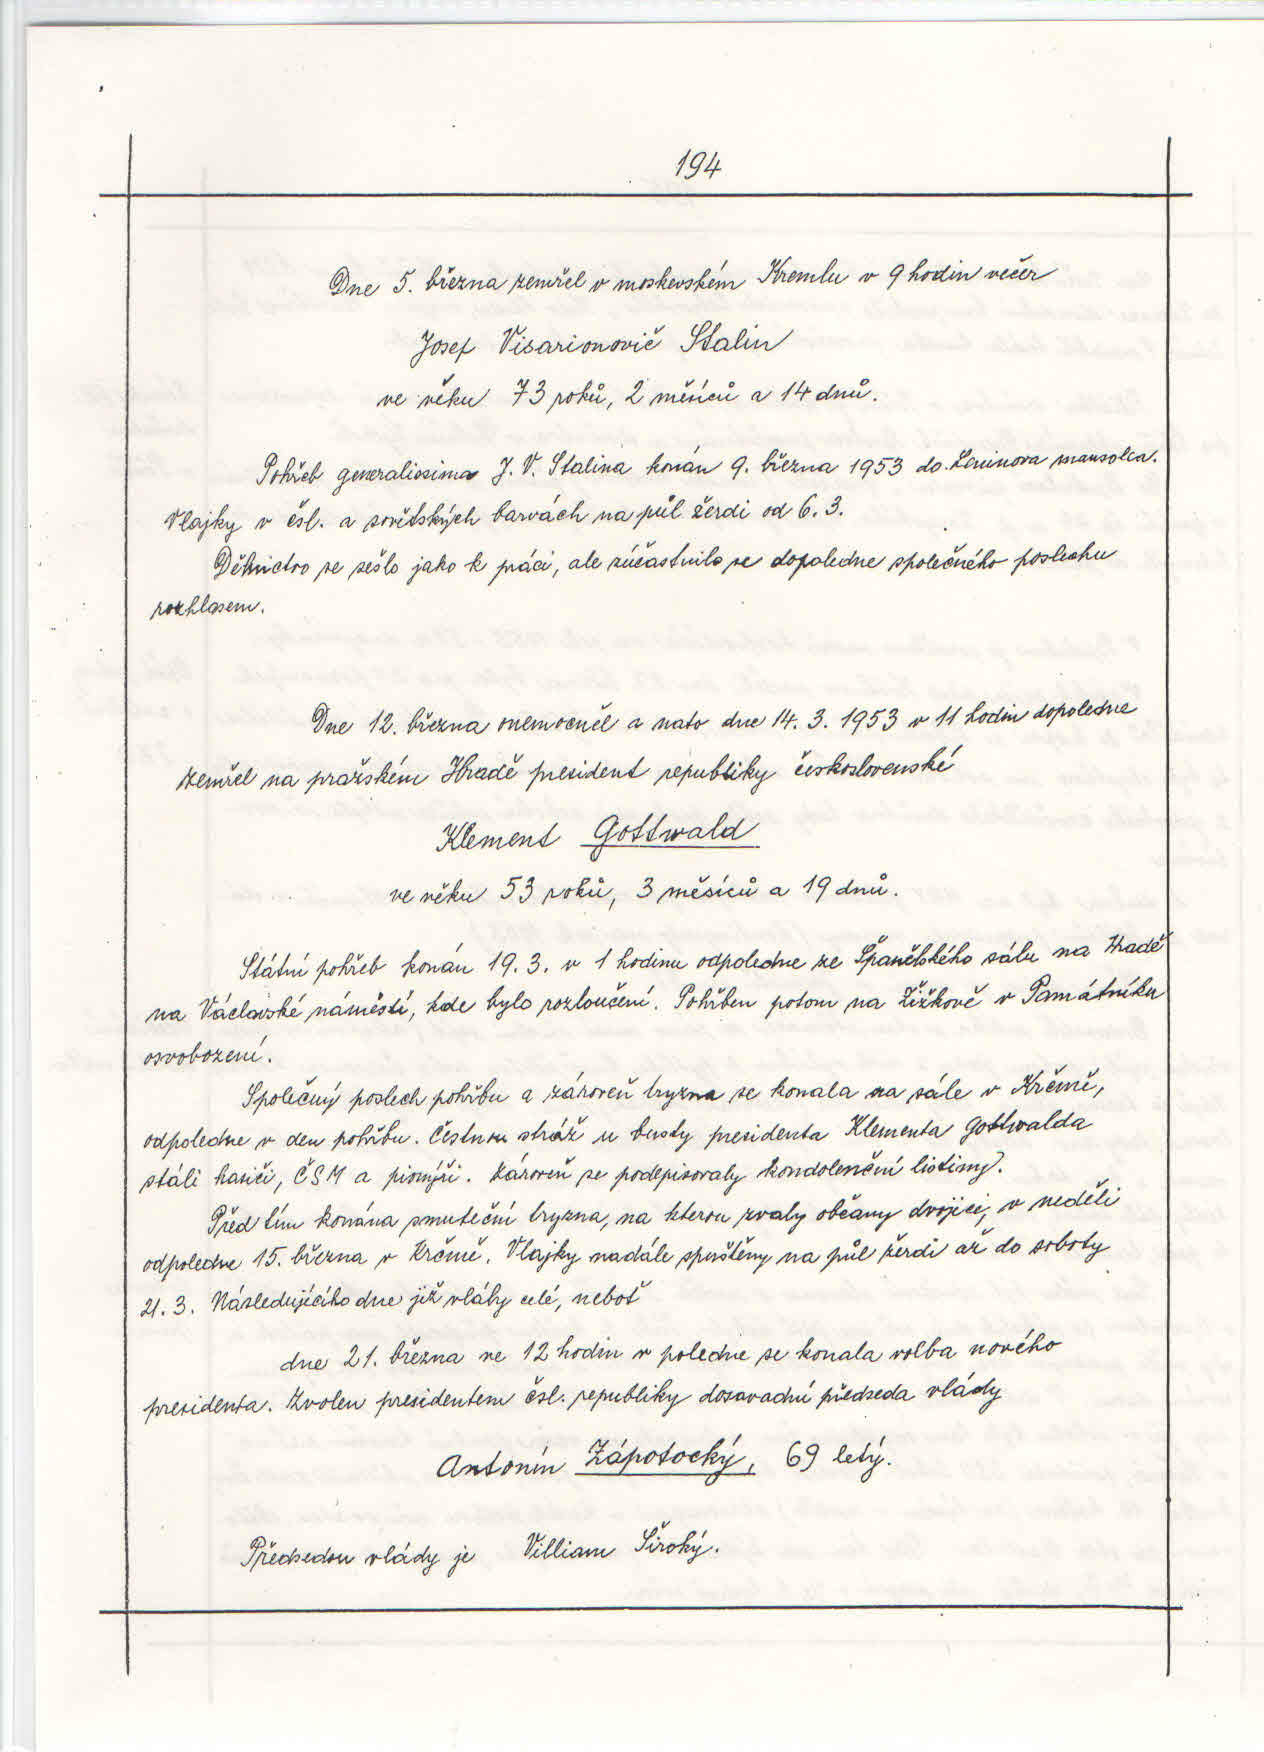 194
Dne 5. března zemřel v moskevském Kremlu v 9 hodin večer
Josef Visarionovič Stalin
ve věku 73 roků, 2 měsíců a 14 dnů.
Pohřeb generalissima J. V. Stalina konán 9. března 1953 do Leninova mausolea.
Vlajky v čsl. a sovětských barvách na půl žerdi od 6. 3.
Dělnictvo se sešlo jako k práci, ale zúčastnilo se dopoledne společného poslechu
rozhlasem.
Dne 12. března onemocněl a nato dne 14. 3. 1953 v 11 hodin dopoledne
zemřel na pražském Hradě president republiky československé
Klement Gottwald
ve věku 53 roků, 3 měsíců a 19 dnů.
Státní pohřeb konán 19. 3. v 1 hodinu odpoledne ze Španělského sálu na Hradě
na Václavské náměstí, kde bylo rozloučení. Pohřben potom na Žižkově v Památníku
osvobození.
Společný poslech pohřbu a zároveň tryzna se konala na sále v Krčmě,
odpoledne v den pohřbu. Čestnou stráž u busty presidenta Klementa Gottwalda
stáli hasiči, ČSM a pionýři. Zároveň se podepisovaly kondolenční listiny.
Před tím konána smuteční tryzna, na kterou zvaly občany dvojice, v neděli
odpoledne 15. března v Krčmě. Vlajky nadále spuštěny na půl žerdi až do soboty
21. 3. Následujícího dne již vlály celé, neboť
dne 21. března ve 12 hodin v poledne se konala volba nového
presidenta. Zvolen presidentem čsl. republiky dosavadní předseda vlády
Antonín Zápotocký, 69 letý.
Předsedou vlády je Villiam Široký.